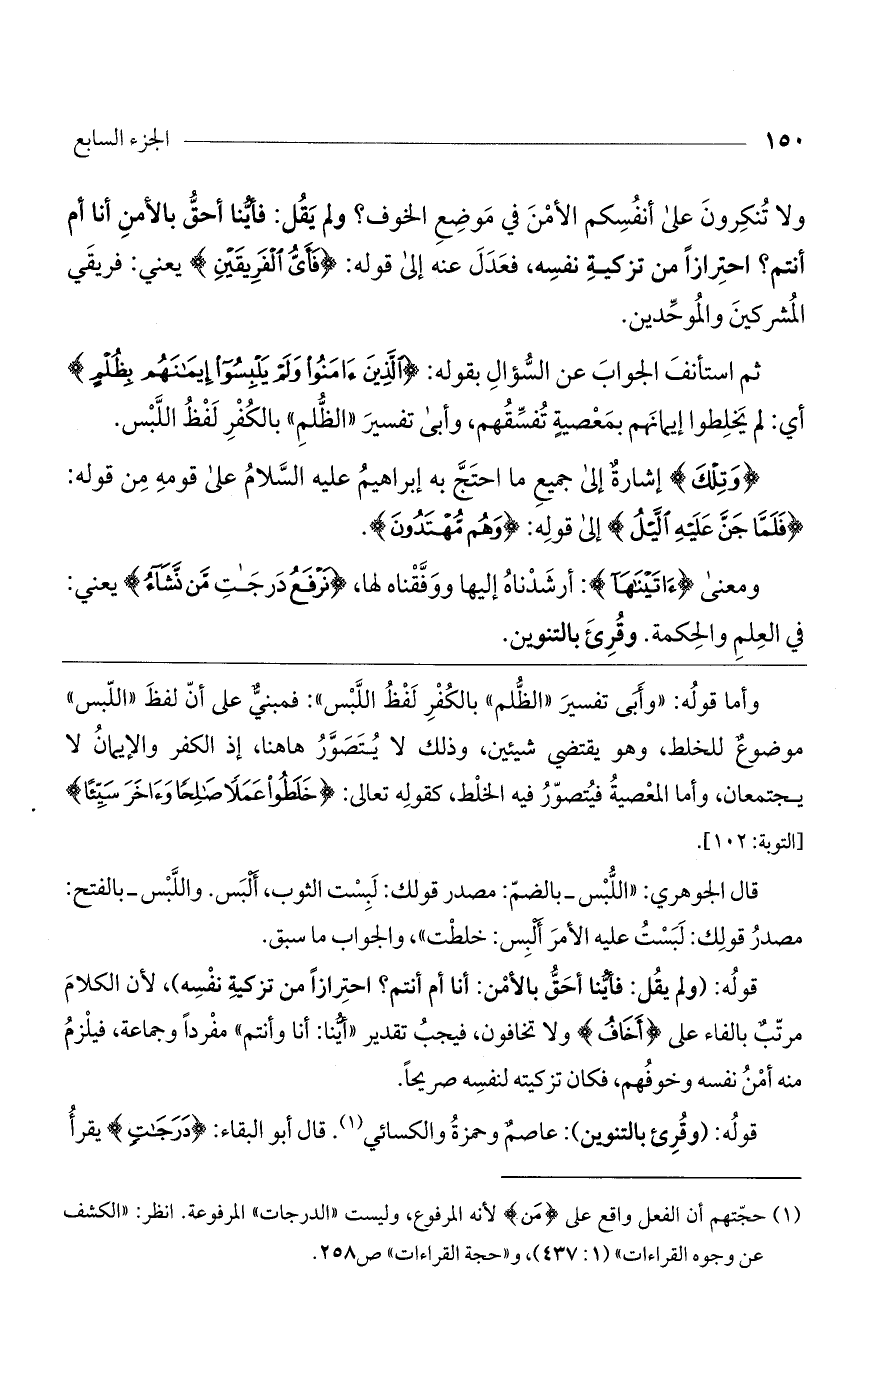 ١٥٠ ـــــــــــــــــــــــــــــــــــــــــــــ الجزء السابع
ولا تُنكِرونَ علىٰ أنفُسِكم الأمْنَ في مَوضِعِ الخوف؟ ولم يَقُل: فأيُّنا أحقُّ بالأمنِ أنا أم
أنتم؟ احتِرازاً من تزكيـةِ نفسِه، فعَدَلَ عنه إلىٰ قوله: ﴿فَأَىُّ ٱلْفَرِيقَيْنِ﴾ يعني: فريقَي
المُشركينَ والمُوحِّدين.
ثم استأنفَ الجوابَ عن السُّؤالِ بقوله: ﴿ٱلَّذِينَ ءَامَنُوا۟ وَلَمْ يَلْبِسُوٓا۟ إِيمَـٰنَهُم بِظُلْمٍ﴾
أي: لم يَخلِطوا إيمانَهم بمَعْصيةٍ تُفسِّقُهم، وأبىٰ تفسيرَ «الظُّلمِ» بالكُفْرِ لَفْظُ اللَّبْس.
﴿وَتِلْكَ﴾ إشارةٌ إلىٰ جميعِ ما احتَجَّ به إبراهيمُ عليه السَّلامُ علىٰ قومهِ مِن قوله:
﴿فَلَمَّا جَنَّ عَلَيْهِ ٱلَّيْلُ﴾ إلىٰ قولِه: ﴿وَهُم مُّهْتَدُونَ﴾.
ومعنىٰ ﴿ءَاتَيْنَـٰهَآ﴾: أرشَدْناهُ إليها ووَفَّقْناه لها، ﴿نَرْفَعُ دَرَجَـٰتِ مَّن نَّشَآءُ﴾ يعني:
في العِلمِ والحِكمة. وقُرِئَ بالتنوين.
وأما قولُه: «وأَبَى تفسيرَ «الظُّلم» بالكُفْرِ لَفْظُ اللَّبْس»: فمبنيٌّ على أنّ لفظَ «اللّبس»
موضوعٌ للخلط، وهو يقتضي شيئين، وذلك لا يُتَصَوَّرُ هاهنا، إذ الكفر والإيمانُ لا
يجتمعان، وأما المعْصيةُ فيُتصوّرُ فيه الخلْط، كقولِه تعالى: ﴿خَلَطُوا۟ عَمَلًا صَـٰلِحًا وَءَاخَرَ سَيِّئًا﴾
[التوبة: ١٠٢].
قال الجوهري: «اللُّبْس ـ بالضمّ: مصدر قولك: لَبِسْت الثوب، أَلْبَس. واللَّبْس ـ بالفتح:
مصدرُ قولِك: لَبَسْتُ عليه الأمرَ أَلْبِس: خلطْت»، والجواب ما سبق.
قولُه: (ولم يقُل: فأيُّنا أحَقُّ بالأمْن: أنا أم أنتم؟ احتِرازاً من تزكيةِ نفْسِه)، لأن الكلامَ
مرتّبٌ بالفاء على ﴿أَخَافُ﴾ ولا تخافون، فيجبُ تقدير «أيُّنا: أنا وأنتم» مفْرداً وجماعة، فيلْزمُ
منه أمْنُ نفسه وخوفُهم، فكان تزكيته لنفسِه صريحاً.
قولُه: (وقُرِئ بالتنوين): عاصمٌ وحمزةُ والكسائي(١). قال أبو البقاء: ﴿دَرَجَـٰتٍ﴾ يقرأُ
(١) حجّتهم أن الفعل واقع على ﴿مَن﴾ لأنه المرفوع، وليست «الدرجات» المرفوعة. انظر: «الكشف
عن وجوه القراءات» (١: ٤٣٧)، و«حجة القراءات» ص٢٥٨.